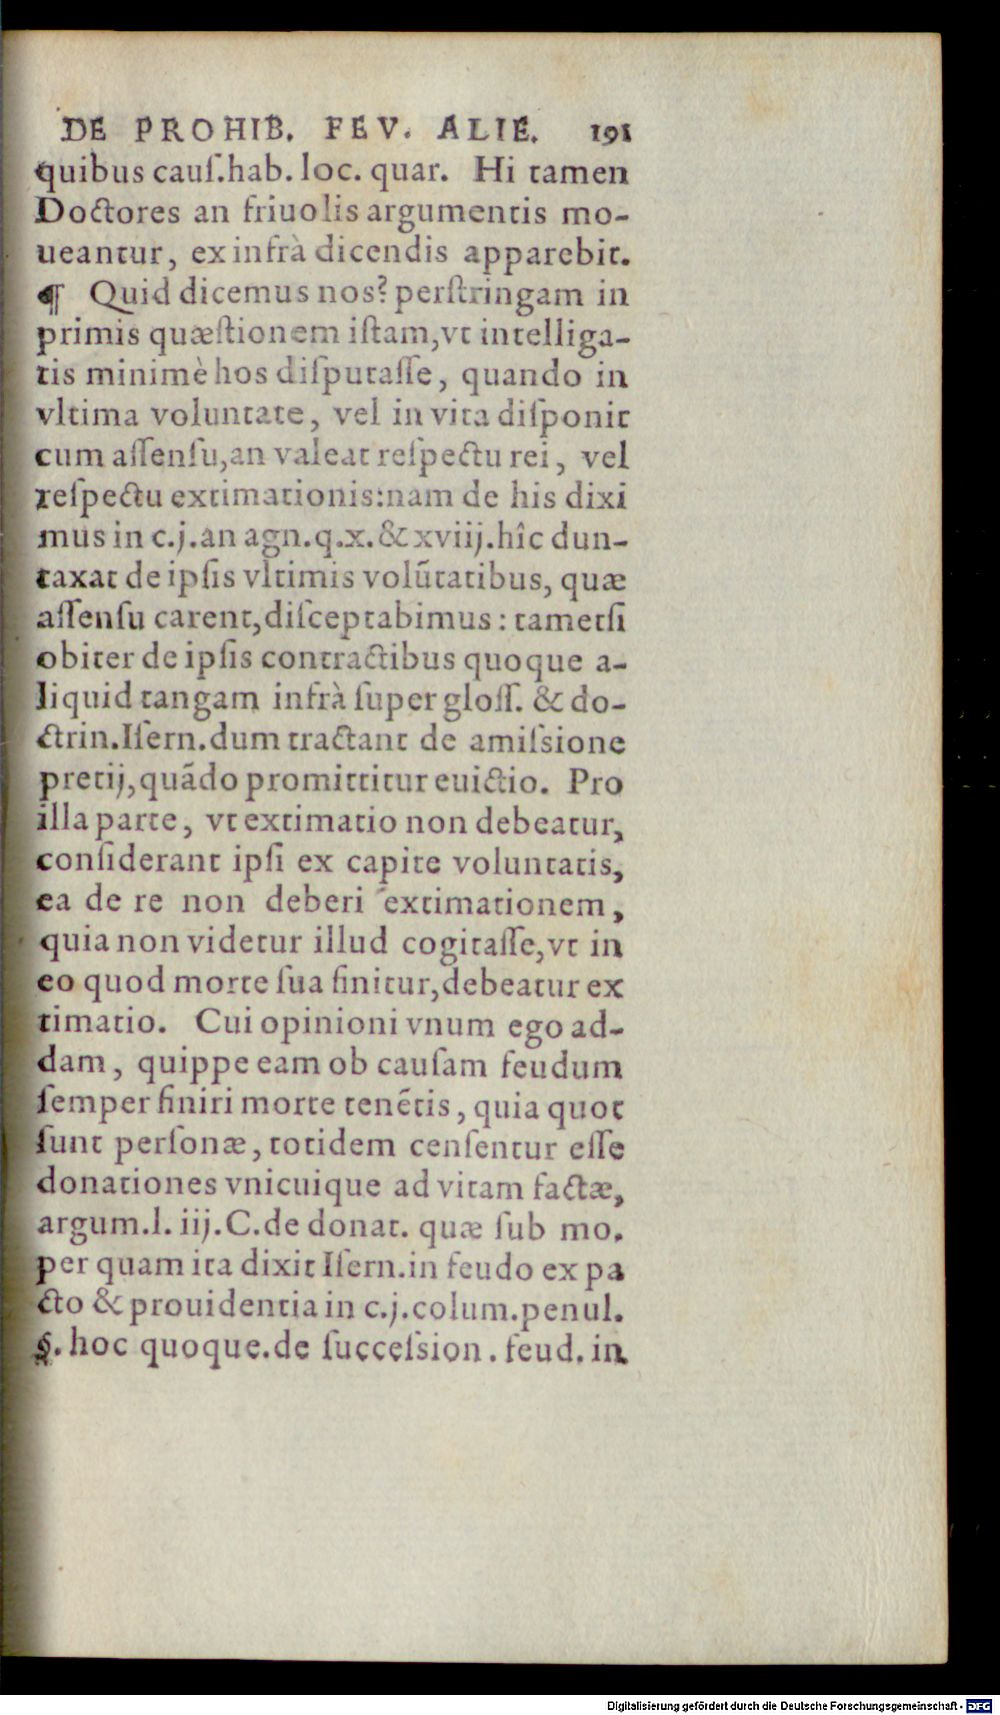 DE PROHIB. FEV. ALIE. 191
quibus cauſ.hab. loc. quar. Hi tamen
Doctores an friuolis argumentis mo-
ueantur, ex infrà dicendis apparebit.
¶ Quid dicemus nos? perſtringam in
primis quæſtionem iſtam,vt intelliga-
tis minimè hos diſputaſſe, quando in
vltima voluntate, vel in vita diſponit
cum aſſenſu,an valeat reſpectu rei, vel
reſpectu extimationis:nam de his dixi
mus in c.j.an agn.q.x.& xviij.hîc dun-
taxat de ipſis vltimis volũtatibus, quæ
aſſenſu carent,diſceptabimus : tametſi
obiter de ipſis contractibus quoque a-
liquid tangam infrà ſuper gloſſ. & do-
ctrin.Iſern.dum tractant de amiſsione
pretij,quãdo promittitur euictio. Pro
illa parte, vt extimatio non debeatur,
conſiderant ipſi ex capite voluntatis,
ea de re non deberi extimationem,
quia non videtur illud cogitaſſe,vt in
eo quod morte ſua finitur,debeatur ex
timatio. Cui opinioni vnum ego ad-
dam, quippe eam ob cauſam feudum
ſemper finiri morte tenẽtis, quia quot
ſunt perſonæ, totidem cenſentur eſſe
donationes vnicuique ad vitam factæ,
argum.l. iij.C.de donat. quæ ſub mo.
per quam ita dixit Iſern.in feudo ex pa
cto & prouidentia in c.j.colum.penul.
§. hoc quoque.de ſucceſsion. feud. in
Digitalisierung gefördert durch die Deutsche Forschungsgemeinschaft - DFG